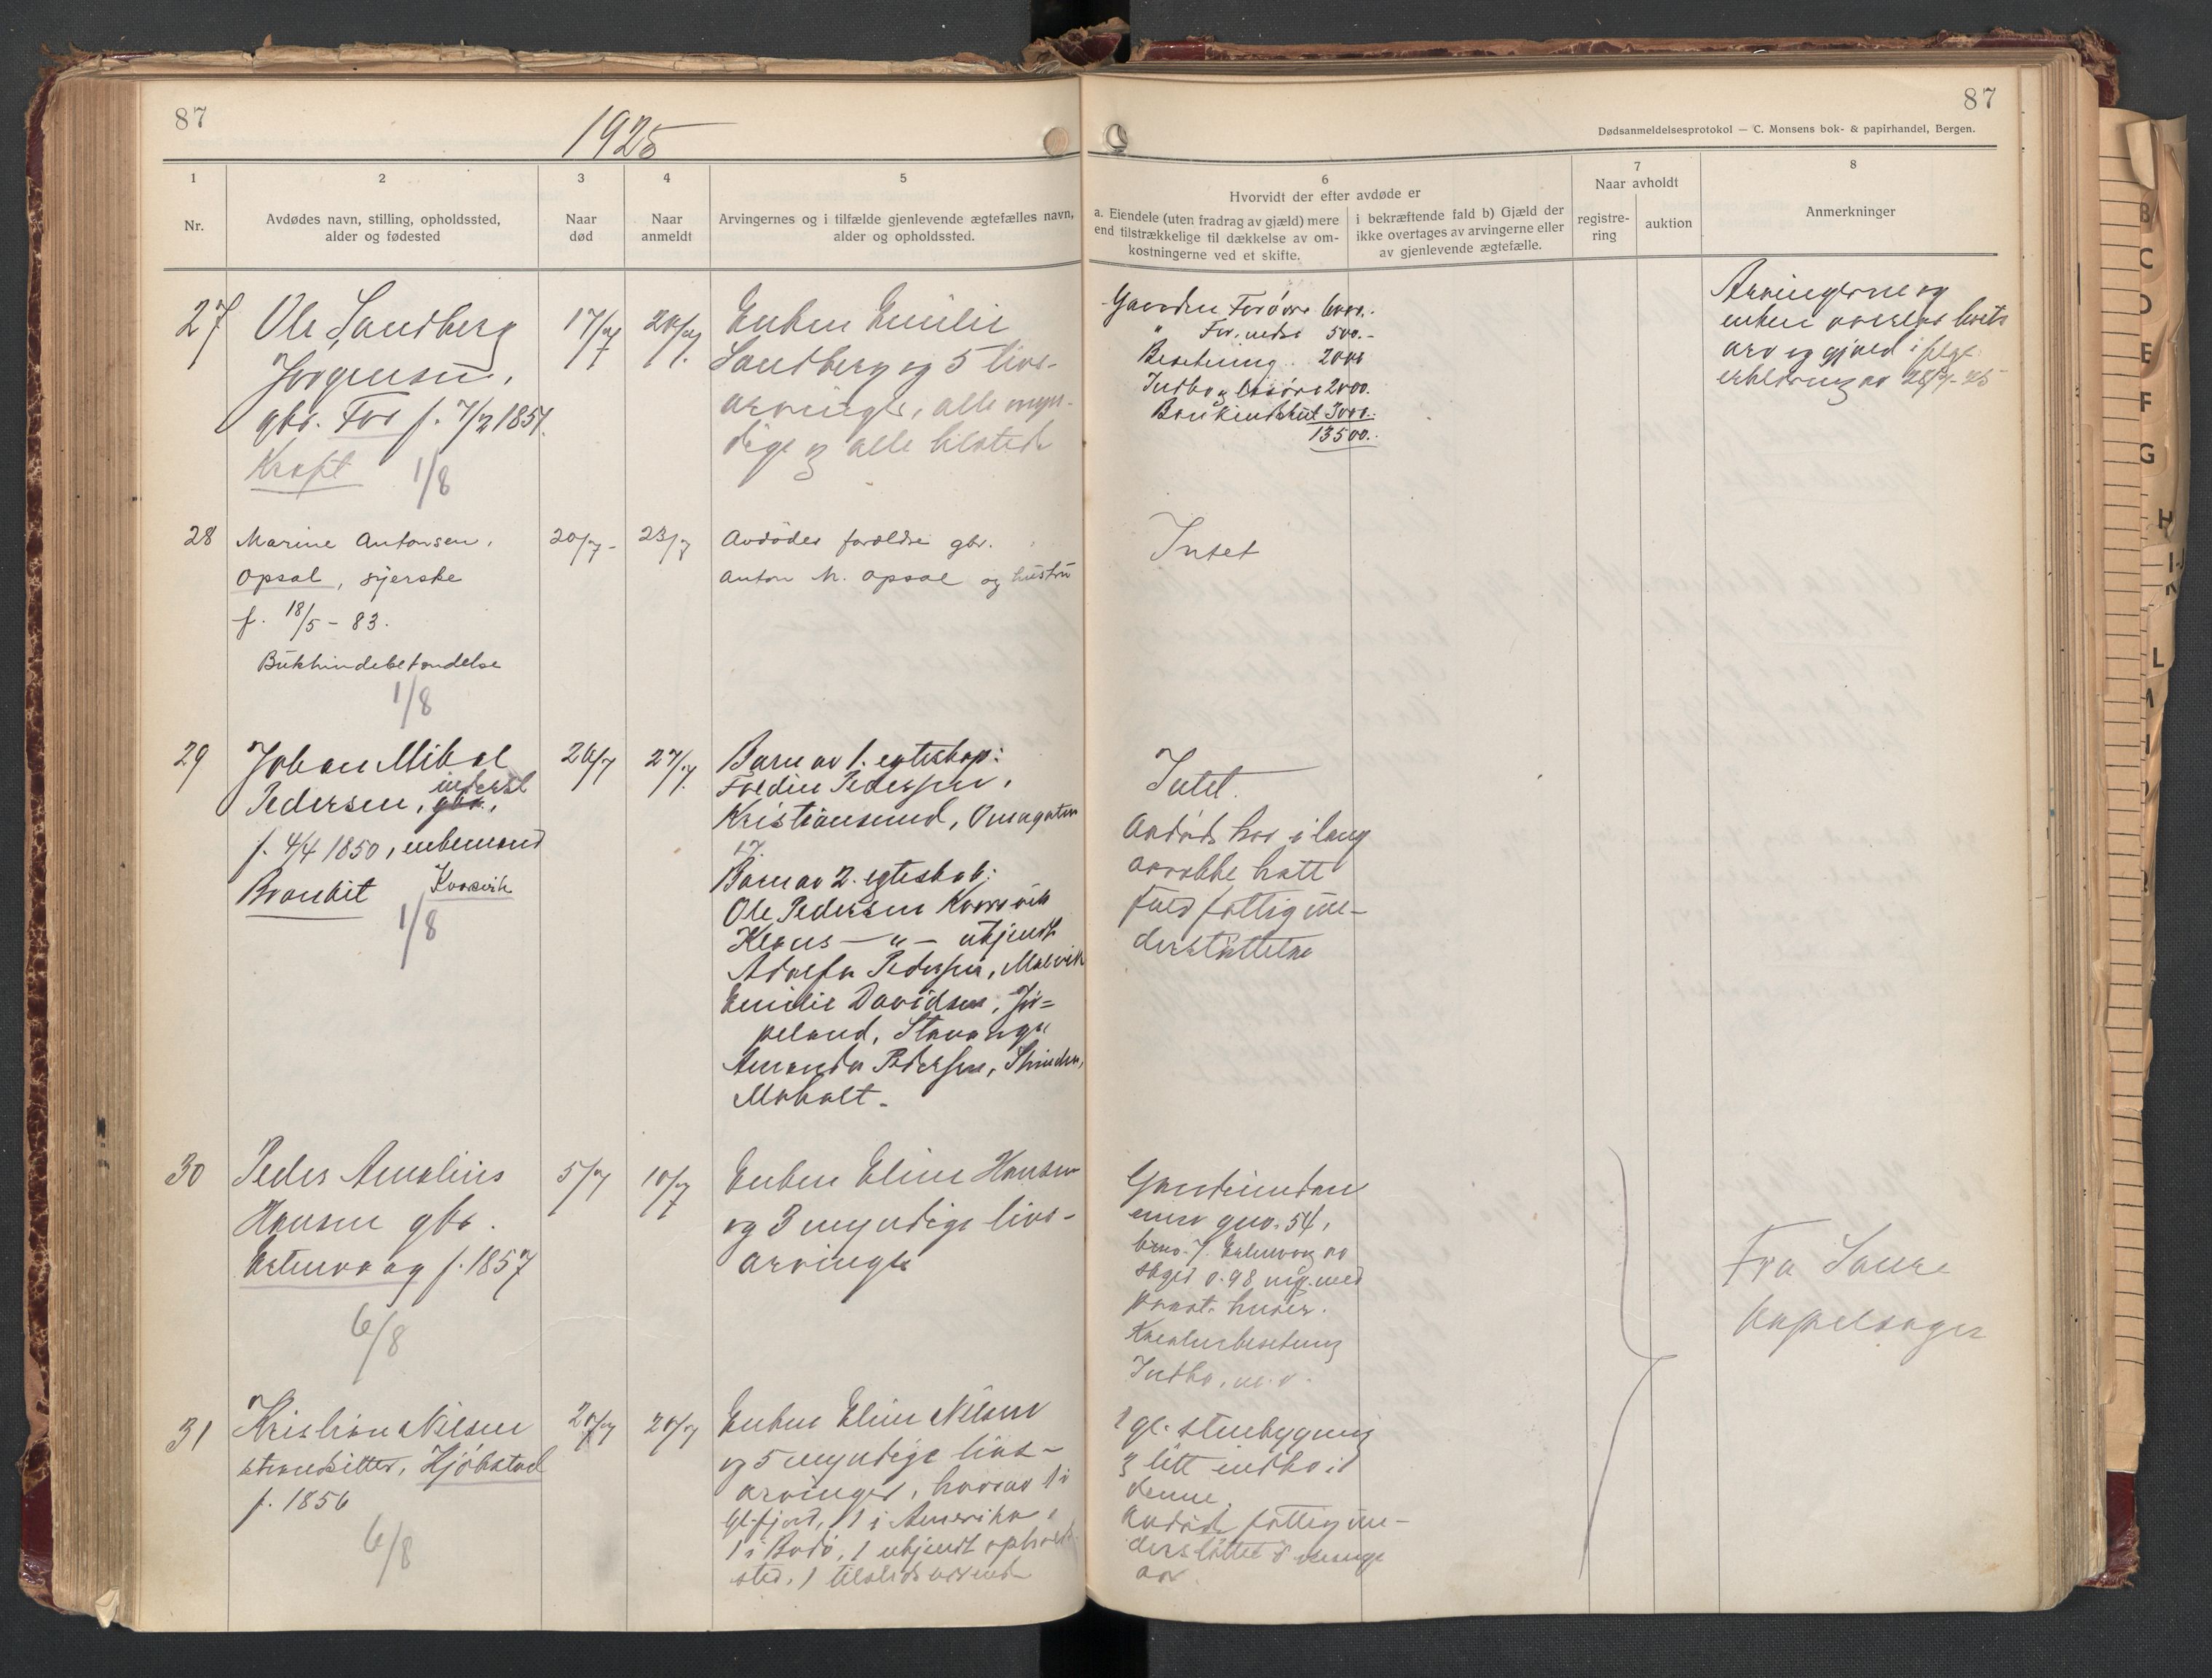 87
1925
87
Dødsanmeldelsesprotokol — C. Monsens bok- & papirhandel, Bergen.
1
Nr.
2
Avdødes navn, stilling, opholdssted,
alder og fødested
3
Naar
død
4
Naar
anmeldt
5
Arvingernes og i tilfælde gjenlevende ægtefælles navn,
alder og opholdssted.
6
Hvorvidt der efter avdøde er
a. Eiendele (uten fradrag av gjæld) mere
end tilstrækkelige til dækkelse av om-
kostningerne ved et skifte.
i bekræftende fald b) Gjæld der
ikke overtages av arvingerne eller
av gjenlevende ægtefælle.
7
Naar avholdt
registre-
ring
auktion
8
Anmerkninger
27
Ole Sandberg
Jørgensen,
gbr. For f. 7/2 1851.
Kræft 1/8
17/7
20/7.
Enken Emilie
Sandberg og 5 livs-
arvinger, alle myn-
dige og alle tilstede
Gaarden Forøvre 6000.-
" For, nedre 500.-
Besetning.. 2000
Indbo og løsøre 2000.
Bankindskud 3000.-
13500.-
Arvingerne og
enken overtar boets
arv og gjæld ifølge
erklæring av 28/7-25
28
Marine Antonsen,
Opsal, syerske
f. 18/5 - 83.
Bukhindebetændelse
1/8
20/7-
23/7
Avdødes forældre gbr.
Anton M. Opsal og hustru
Intet
29
Johan Mikal
Pedersen, gbr., inderst
f. 4/4 1850, enkemand
Bronkit Kvasvik
1/8
26/7
27/7.
Barn av 1. egteskap:
Fredin Pedersen,
Kristiansund,
17.
Barn av 2. egteskab:
Ole Pedersen Korsvik
Klaus — " — ukjendt
Adolfa Pedersen, Malvik
Emilie Davidsen, Jør-
peland, Stavanger
Amanda Pedersen, Strinden,
Moholt.
Intet.
Avdøde har i lang
aarrække hatt
fuld fattigun-
derstøttelse
30
Peder Amalius
Hansen gbr.
Estenvaag f. 1857
6/8
5/7
10/7
Enken Eline Hansen
og 3 myndige livs-
arvinger
Gaardeiendom-
men gno. 54,
bno. 7. Estenvaag av
skyld 0.98 mrk. med
paast. huser.
Kreaturbesetning
Indbo, m.v.
Fra Saure
kapelsogn
31
Kristian Nilsen
strandsitter, Hjöbstad
f. 1856
6/8
20/7
20/7
Enken Eline Nilsen
og 5 myndige livs-
arvinger, hvorav 1 i
1 i Amerika,
1 i Bodø, 1 ukjendt opholds-
sted, 1 tilstedeværende
1 gl. stuebygning
og litt indbo i
denne.
Avdøde fattigun-
derstøttet i mange
aar.
B
C
D
E
F
G
H
I-J
K
L